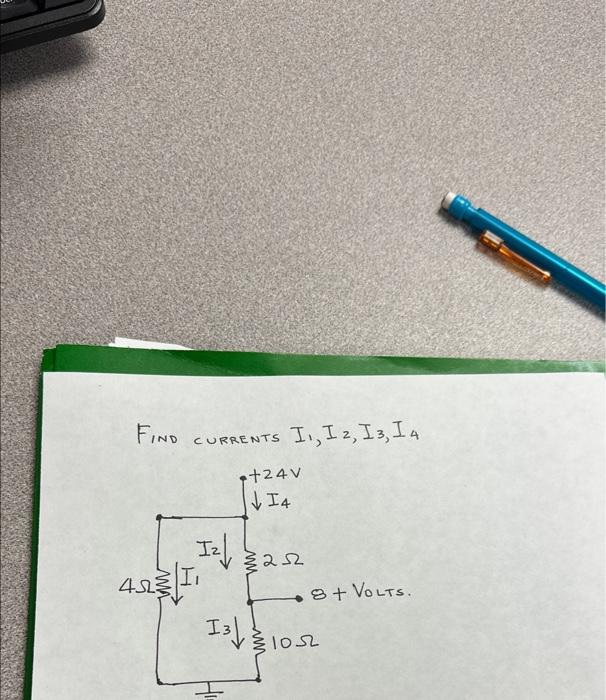 FIND CURRENTS I1, I2, I3, I4
+24V
↓ I4
I2↓ 2Ω
4Ω ↓I1
8 + VOLTS.
I3↓ 10Ω